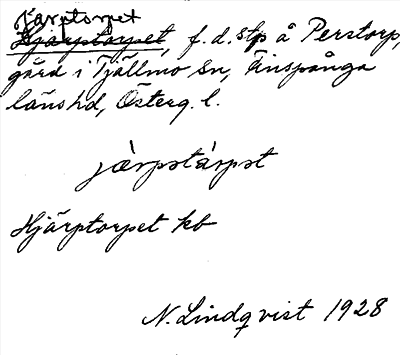 Järptorpet
Hjärptorpet, f.d. stp å Perstorp,
gård i Tjällmo sn, Finspånga
läns hd, Österg. l.
jàrpstárpst
Hjärptorpet kb
N. Lindqvist 1928